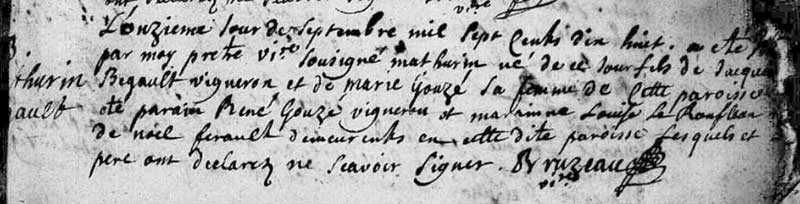 vire
B.
thurin
gault
L'onzieme Jour de Septembre mil Sept Cents dix huit. a eté
par moy pretre vire Sousigné mathurin né de ce Jour fils de Jacque
Begault vigneron et de marie Gouzé Sa femme de Cette paroisse
eté parain René Gouze vigneron et maraine Louise le
de noël ferault demeurents en cette dite paroisse Lesquels et
pere ont declarez ne Scavoir Signer. Bruzeau
vire